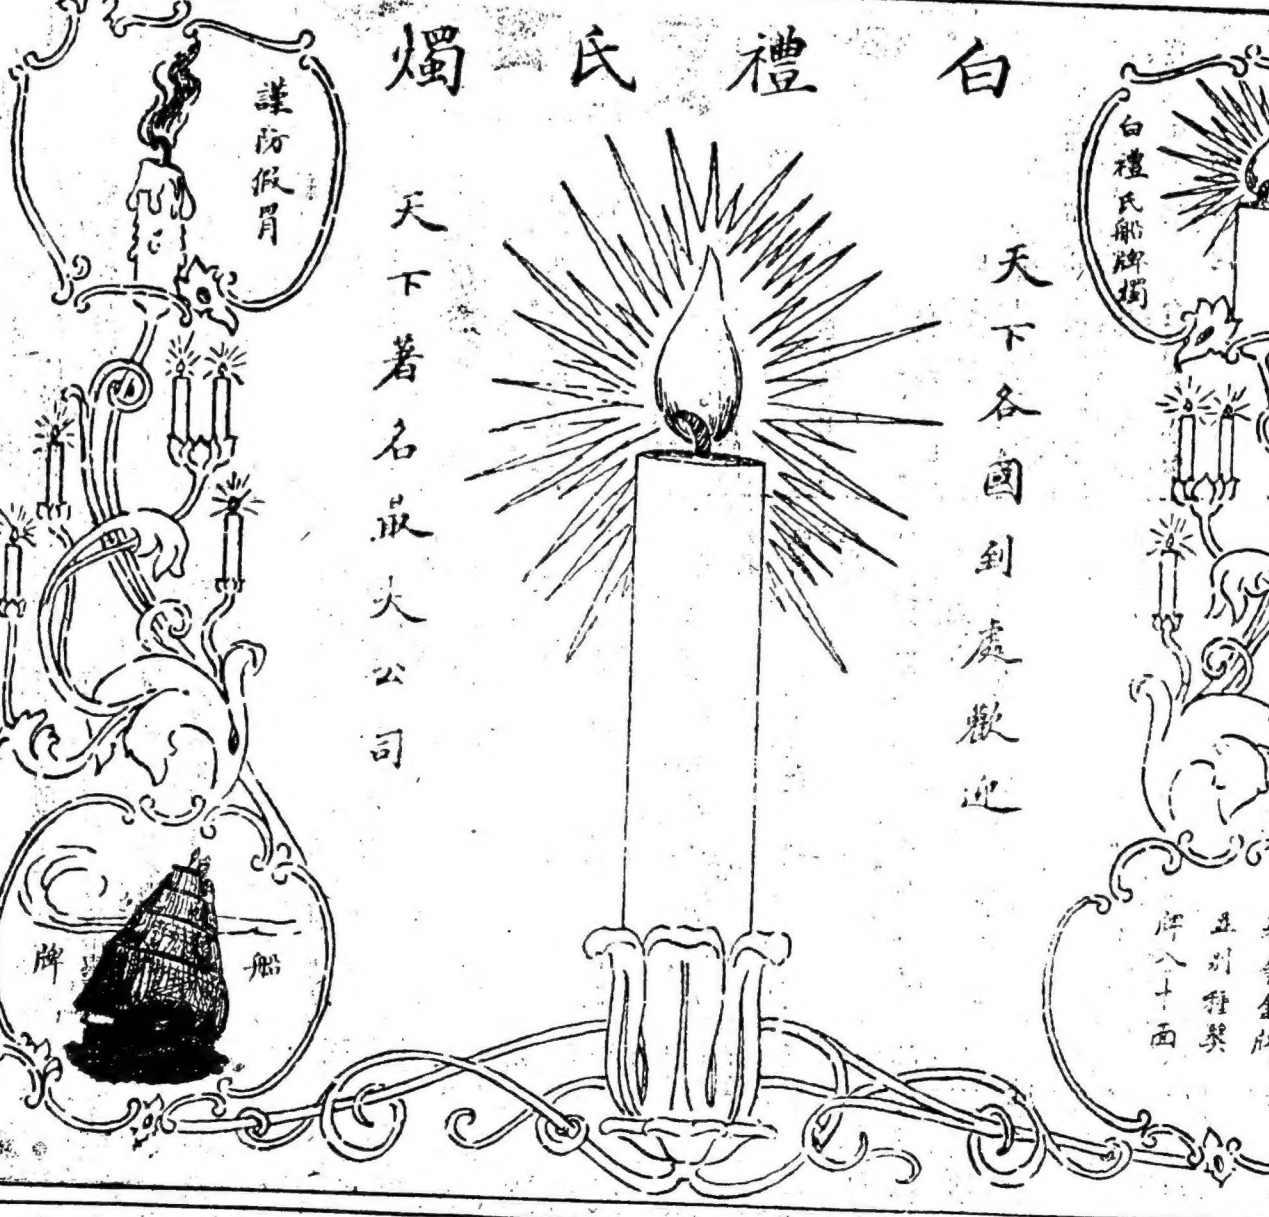 白禮氏燭
白禮氏船牌燭
天下各國到處歡迎
天下著名最大公司
謹防假冒
並別種獎
牌八十面
船牌